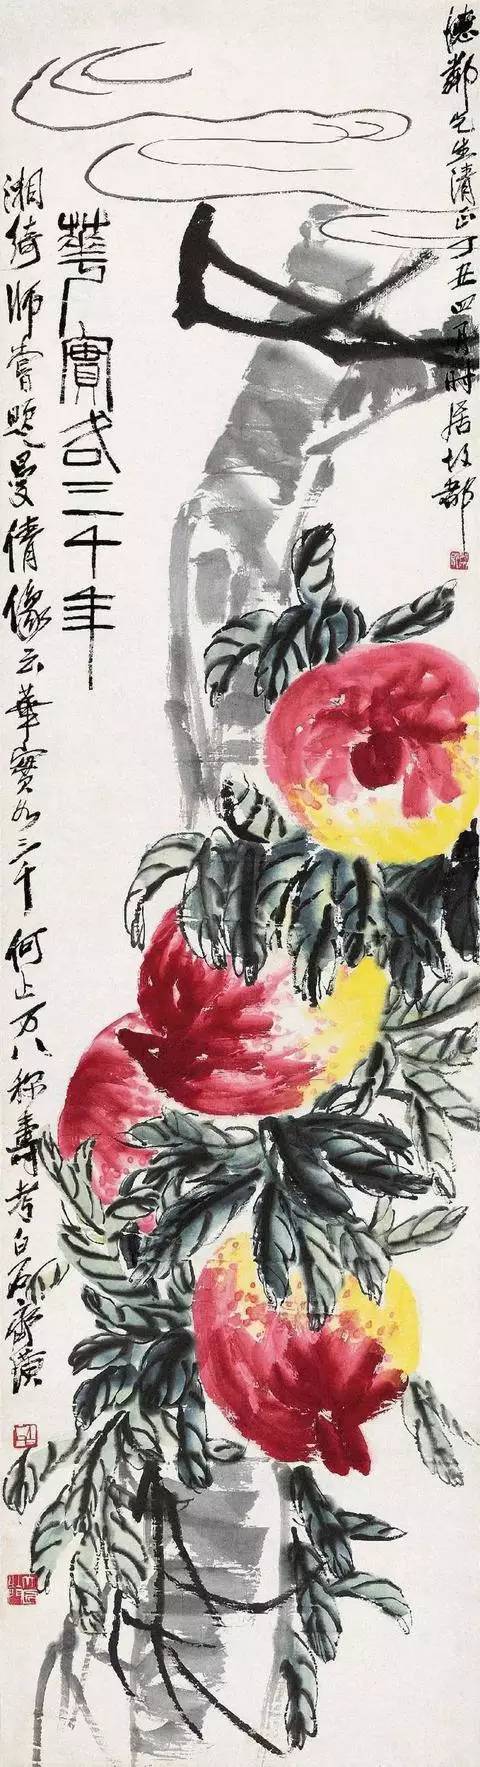 德鄰先生清正丁丑四月時居故都
華實各三千年
湘綺師嘗題曼倩像云華實各三千何止万八称壽考白石齊璜